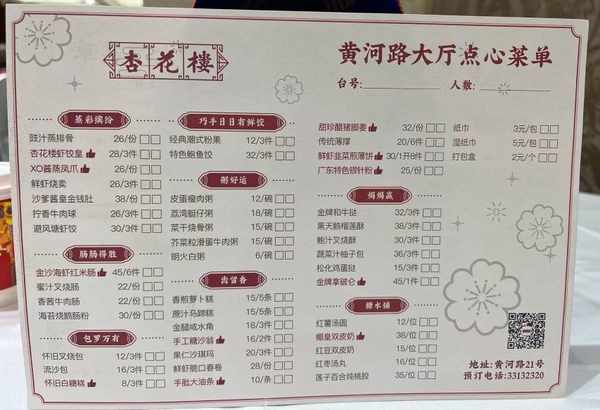 杏花楼
黄河路大厅点心菜单
台号:
人数:
蒸彩缤纷
豉汁蒸排骨 26/份
杏花楼虾饺皇 28/3件
XO酱蒸凤爪 26/份
鲜虾烧卖 26/3件
沙爹酱皇金钱肚 38/份
拧香牛肉球 26/3件
避风塘虾饺 30/3件
肠肠得胜
金沙海虾红米肠 45/6件
蜜汁叉烧肠 22/份
香茜牛肉肠 22/份
海苔烧鹅肠粉 30/份
包罗万有
怀旧叉烧包 12/3件
流沙包 16/3件
怀旧白糖糕 8/3件
巧手日日有鲜饺
经典潮式粉果 12/3件
特色鲍鱼饺 32/3件
粥好运
皮蛋瘦肉粥 12/碗
荔湾艇仔粥 18/碗
菜干烧骨粥 15/碗
芥菜粒滑蛋牛肉粥 15/碗
明火白粥 6/碗
齿留香
香煎萝卜糕 15/5条
蔗汁马蹄糕 15/5条
金腿咸水角 18/3件
手工糖沙翁 16/2件
果仁沙琪玛 20/3件
鲜虾脆口春卷 28/份
手肶大油条 10/条
甜珍醋猪脚姜 32/份
传统薄撑 20/6件
鲜虾韭菜煎薄饼 30/1开8件
广东特色银针粉 25/份
焗焗赢
金牌和牛挞 32/3件
黑天鹅榴莲酥 38/3件
鲍汁叉烧酥 30/3件
蔬菜汁柚子包 36/3件
松化鸡蛋挞 15/3件
金牌拿破仑 45/1件
糖水铺
红薯汤圆 12/位
椰皇双皮奶 38/位
红豆双皮奶 15/位
红枣汤丸 16/位
莲子百合炖桃胶 35/位
纸巾 3元/包
湿纸巾 5元/包
打包盒 2元/个
地址:黄河路21号
预订电话:33132320